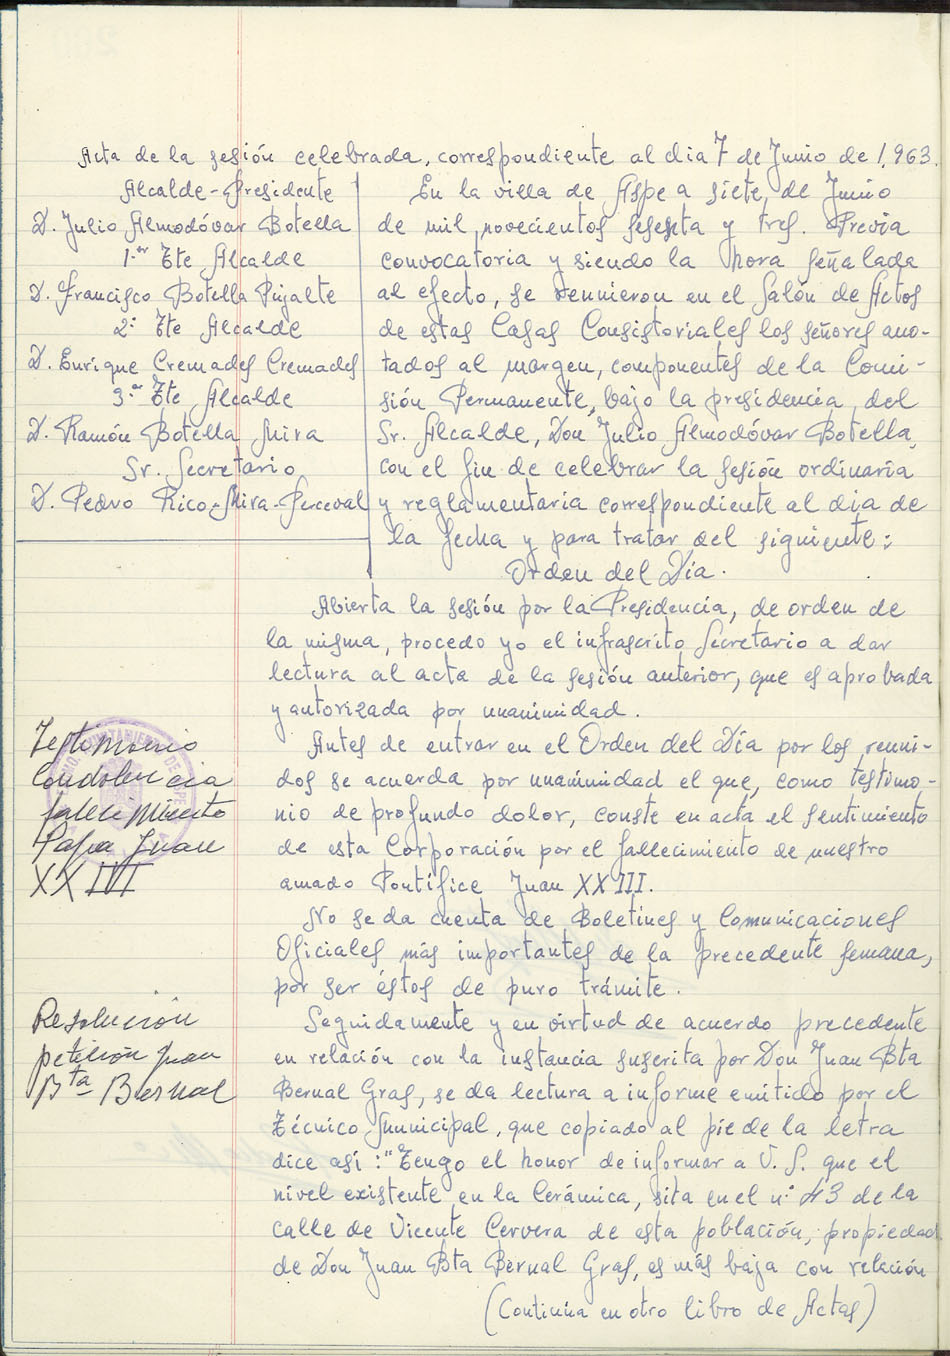 Acta de la sesión celebrada, correspondiente al dia 7 de Junio de 1,963.
Alcalde-Presidente
D. Julio Almodóvar Botella
1.er Tte Alcalde
D. Francisco Botella Pujalte
2º Tte Alcalde
D. Enrique Cremades Cremades
3.er Tte Alcalde
D. Ramón Botella Mira
Sr. Secretario
D. Pedro Rico-Mira-Perceval
En la villa de Aspe a siete de Junio
de mil novecientos sesenta y tres. Previa
convocatoria y siendo la hora señalada
al efecto, se reunieron en el Salón de Actos
de estas Casas Consistoriales los señores ano-
tados al margen, componentes de la Comi-
sión Permanente, bajo la presidencia del
Sr. Alcalde, Don Julio Almodóvar Botella,
con el fin de celebrar la sesión ordinaria
y reglamentaria correspondiente al dia de
la fecha y para tratar del siguiente:
Orden del Día.
Abierta la sesión por la Presidencia, de orden de
la misma, procedo yo el infrascrito Secretario a dar
lectura al acta de la sesión anterior, que es aprobada
y autorizada por unanimidad.
Testimonio
Condolencia
fallecimiento
Papa Juan
Antes de entrar en el Orden del Día por los reuni-
dos se acuerda por unanimidad el que, como testimo-
nio de profundo dolor, conste en acta el sentimiento
de esta Corporación por el fallecimiento de nuestro
amado Pontífice Juan XXIII.
No se da cuenta de Boletines y Comunicaciones
Oficiales más importantes de la precedente semana,
por ser éstos de puro trámite.
Resolución
petición Juan
Bta Bernal
Seguidamente y en virtud de acuerdo precedente
en relación con la instancia suscrita por Don Juan Bta
Bernal Gras, se da lectura a informe emitido por el
Técnico Municipal, que copiado al pie de la letra
dice así: "Tengo el honor de informar a V. S. que el
nivel existente en la Cerámica, sita en el nº 43 de la
calle de Vicente Cervera de esta población, propiedad
de Don Juan Bta Bernal Gras, es más baja con relación
(Continúa en otro libro de Actas)